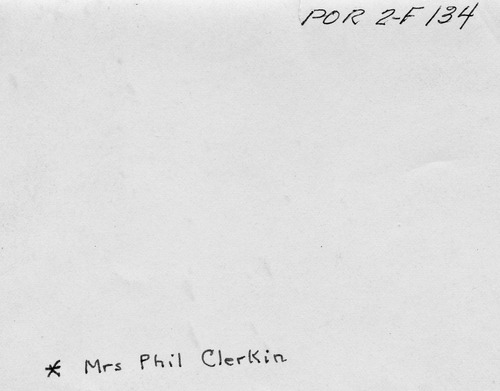 POR 2-F 134
* Mrs Phil Clerkin